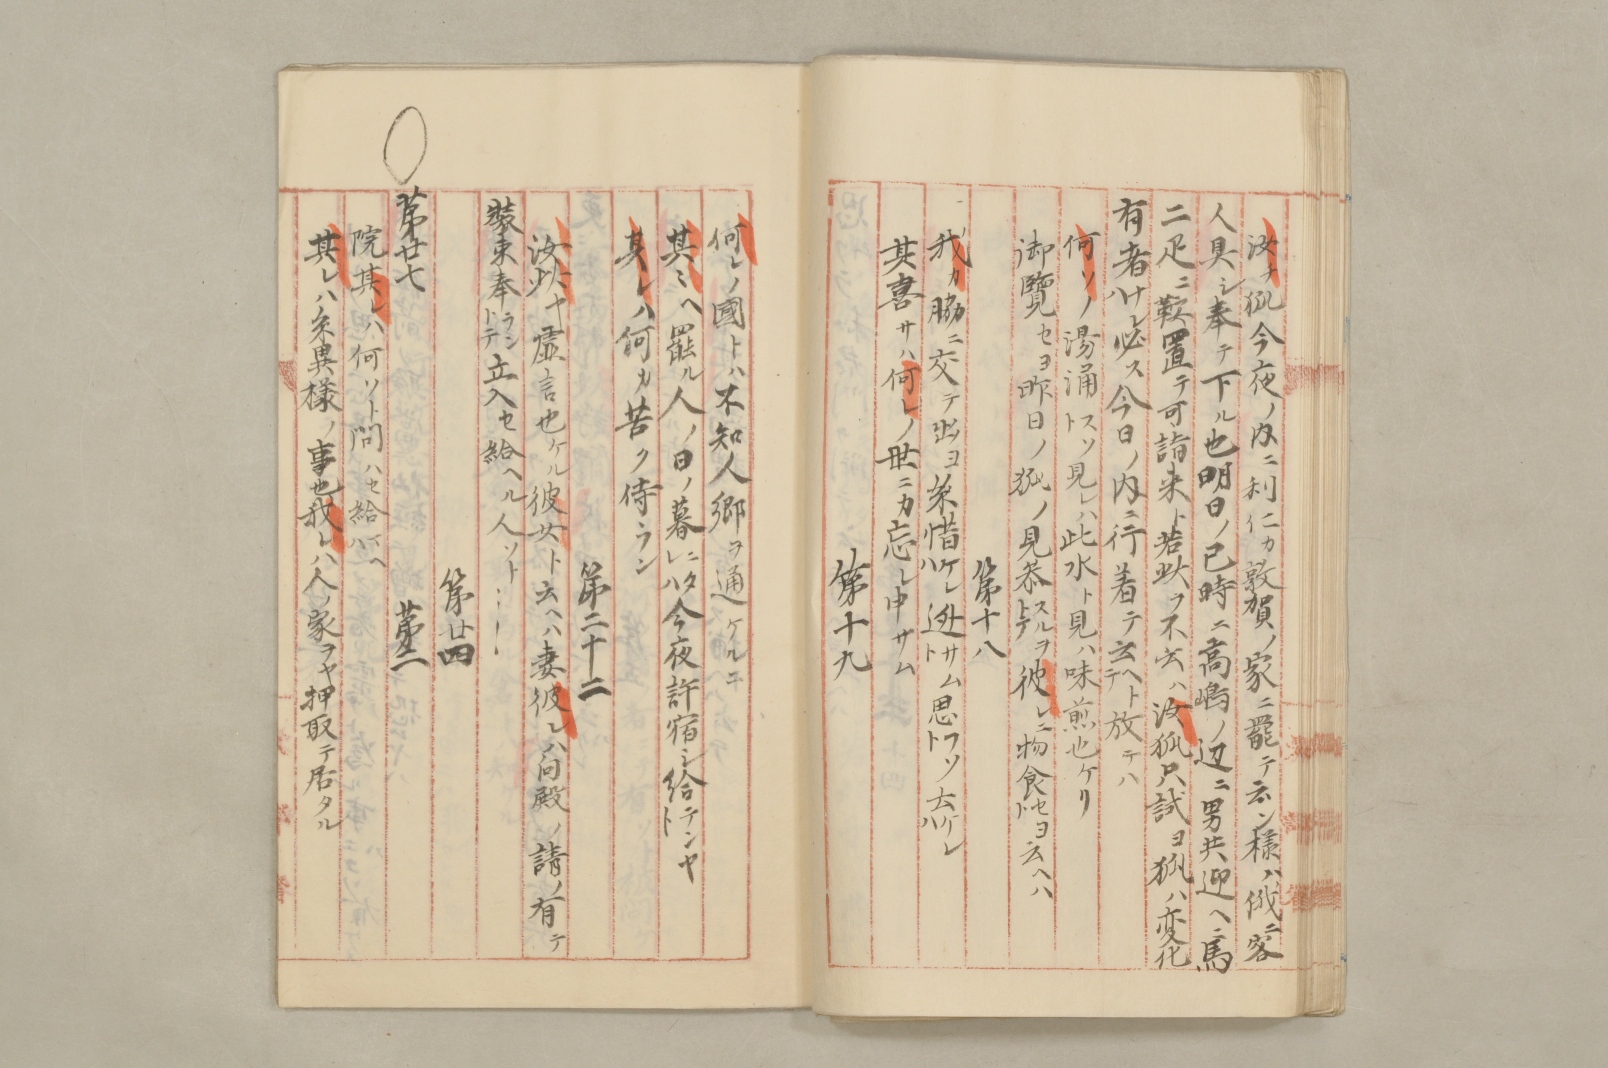 汝ナ狐今夜ノ内ニ利仁カ敦賀ノ家ニ罷テ云ン様ハ俄ニ客
人具シ奉テ下ル也明日ノ巳時ニ高嶋ノ辺ニ男共迎ヘニ馬
二疋ニ鞍置テ可詣来ト若此ヲ不云ハ汝狐只試ヨ狐ハ変化
有者ナレハ必ス今日ノ内ニ行着テ云ヘトテ放テハ
何ソノ湯涌スソト見レハ此水ト見ハ味煎也ケリ
御覽セヨ昨日ノ狐ノ見〻スルヲトテ彼レニ物食セヨト云ヘハ
第十八
我カ脇ニ交テ出ヨ糸惜ケレハ迯サムト思フソト云ケレハ
其喜サハ何レノ世ニカ忘レ申サム
第十九
何レノ國トハ不知人郷ヲ通ケルニ
其ミヘ罷ル人ノ日ノ暮レニタハ今夜許宿シ給テンヤト
其レハ何カ苦ク侍ラン
第二十二
汝此ナ虚言也ケル彼女ト云ヘハ妻彼レハ向殿ノ請ノ有テ
装束奉ラントテ立入セ給ヘル人ソト……
第廿四
第廿七 第二
院其レハ何ソト問ハセ給ヘハ
其レハ糸異様ノ事也我レハ人ノ家ヲヤ押取テ居タル